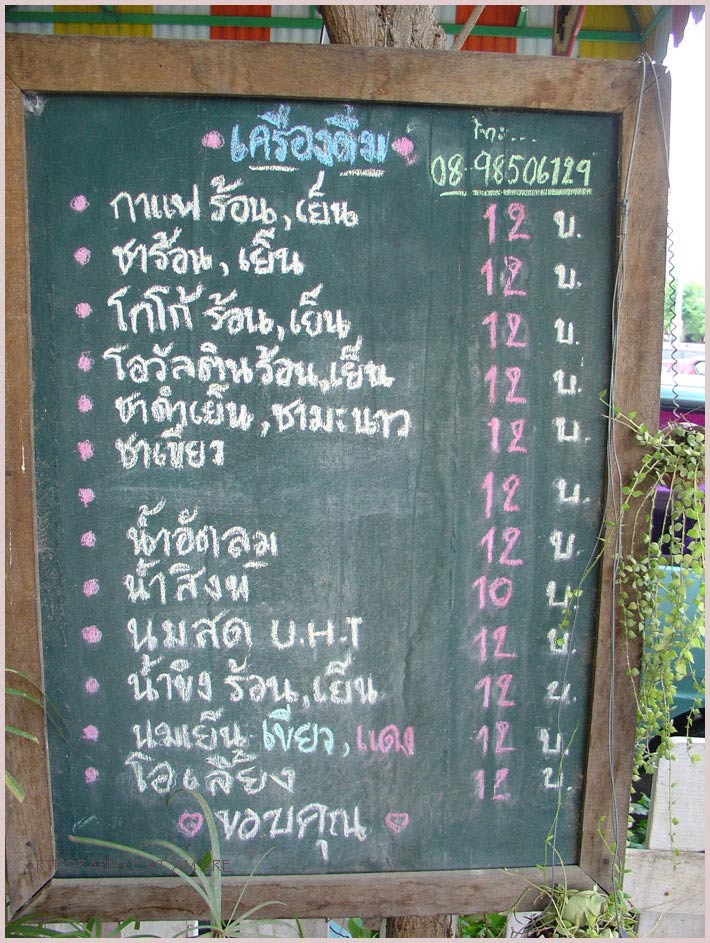 เครื่องดื่ม
โทร...
08-98506129
กาแฟ ร้อน, เย็น 12 บ.
ชาร้อน, เย็น 12 บ.
โกโก้ ร้อน, เย็น 12 บ.
โอวัลตินร้อน, เย็น 12 บ.
ชาดำเย็น, ชามะนาว 12 บ.
ชาเขียว
12 บ.
น้ำอัดลม 12 บ.
น้ำสิงห์ 10 บ.
นมสด U.H.T 12 บ.
น้ำขิง ร้อน, เย็น 12 บ.
นมเย็น เขียว, แดง 12 บ.
โอเลี้ยง 12 บ.
ขอบคุณ